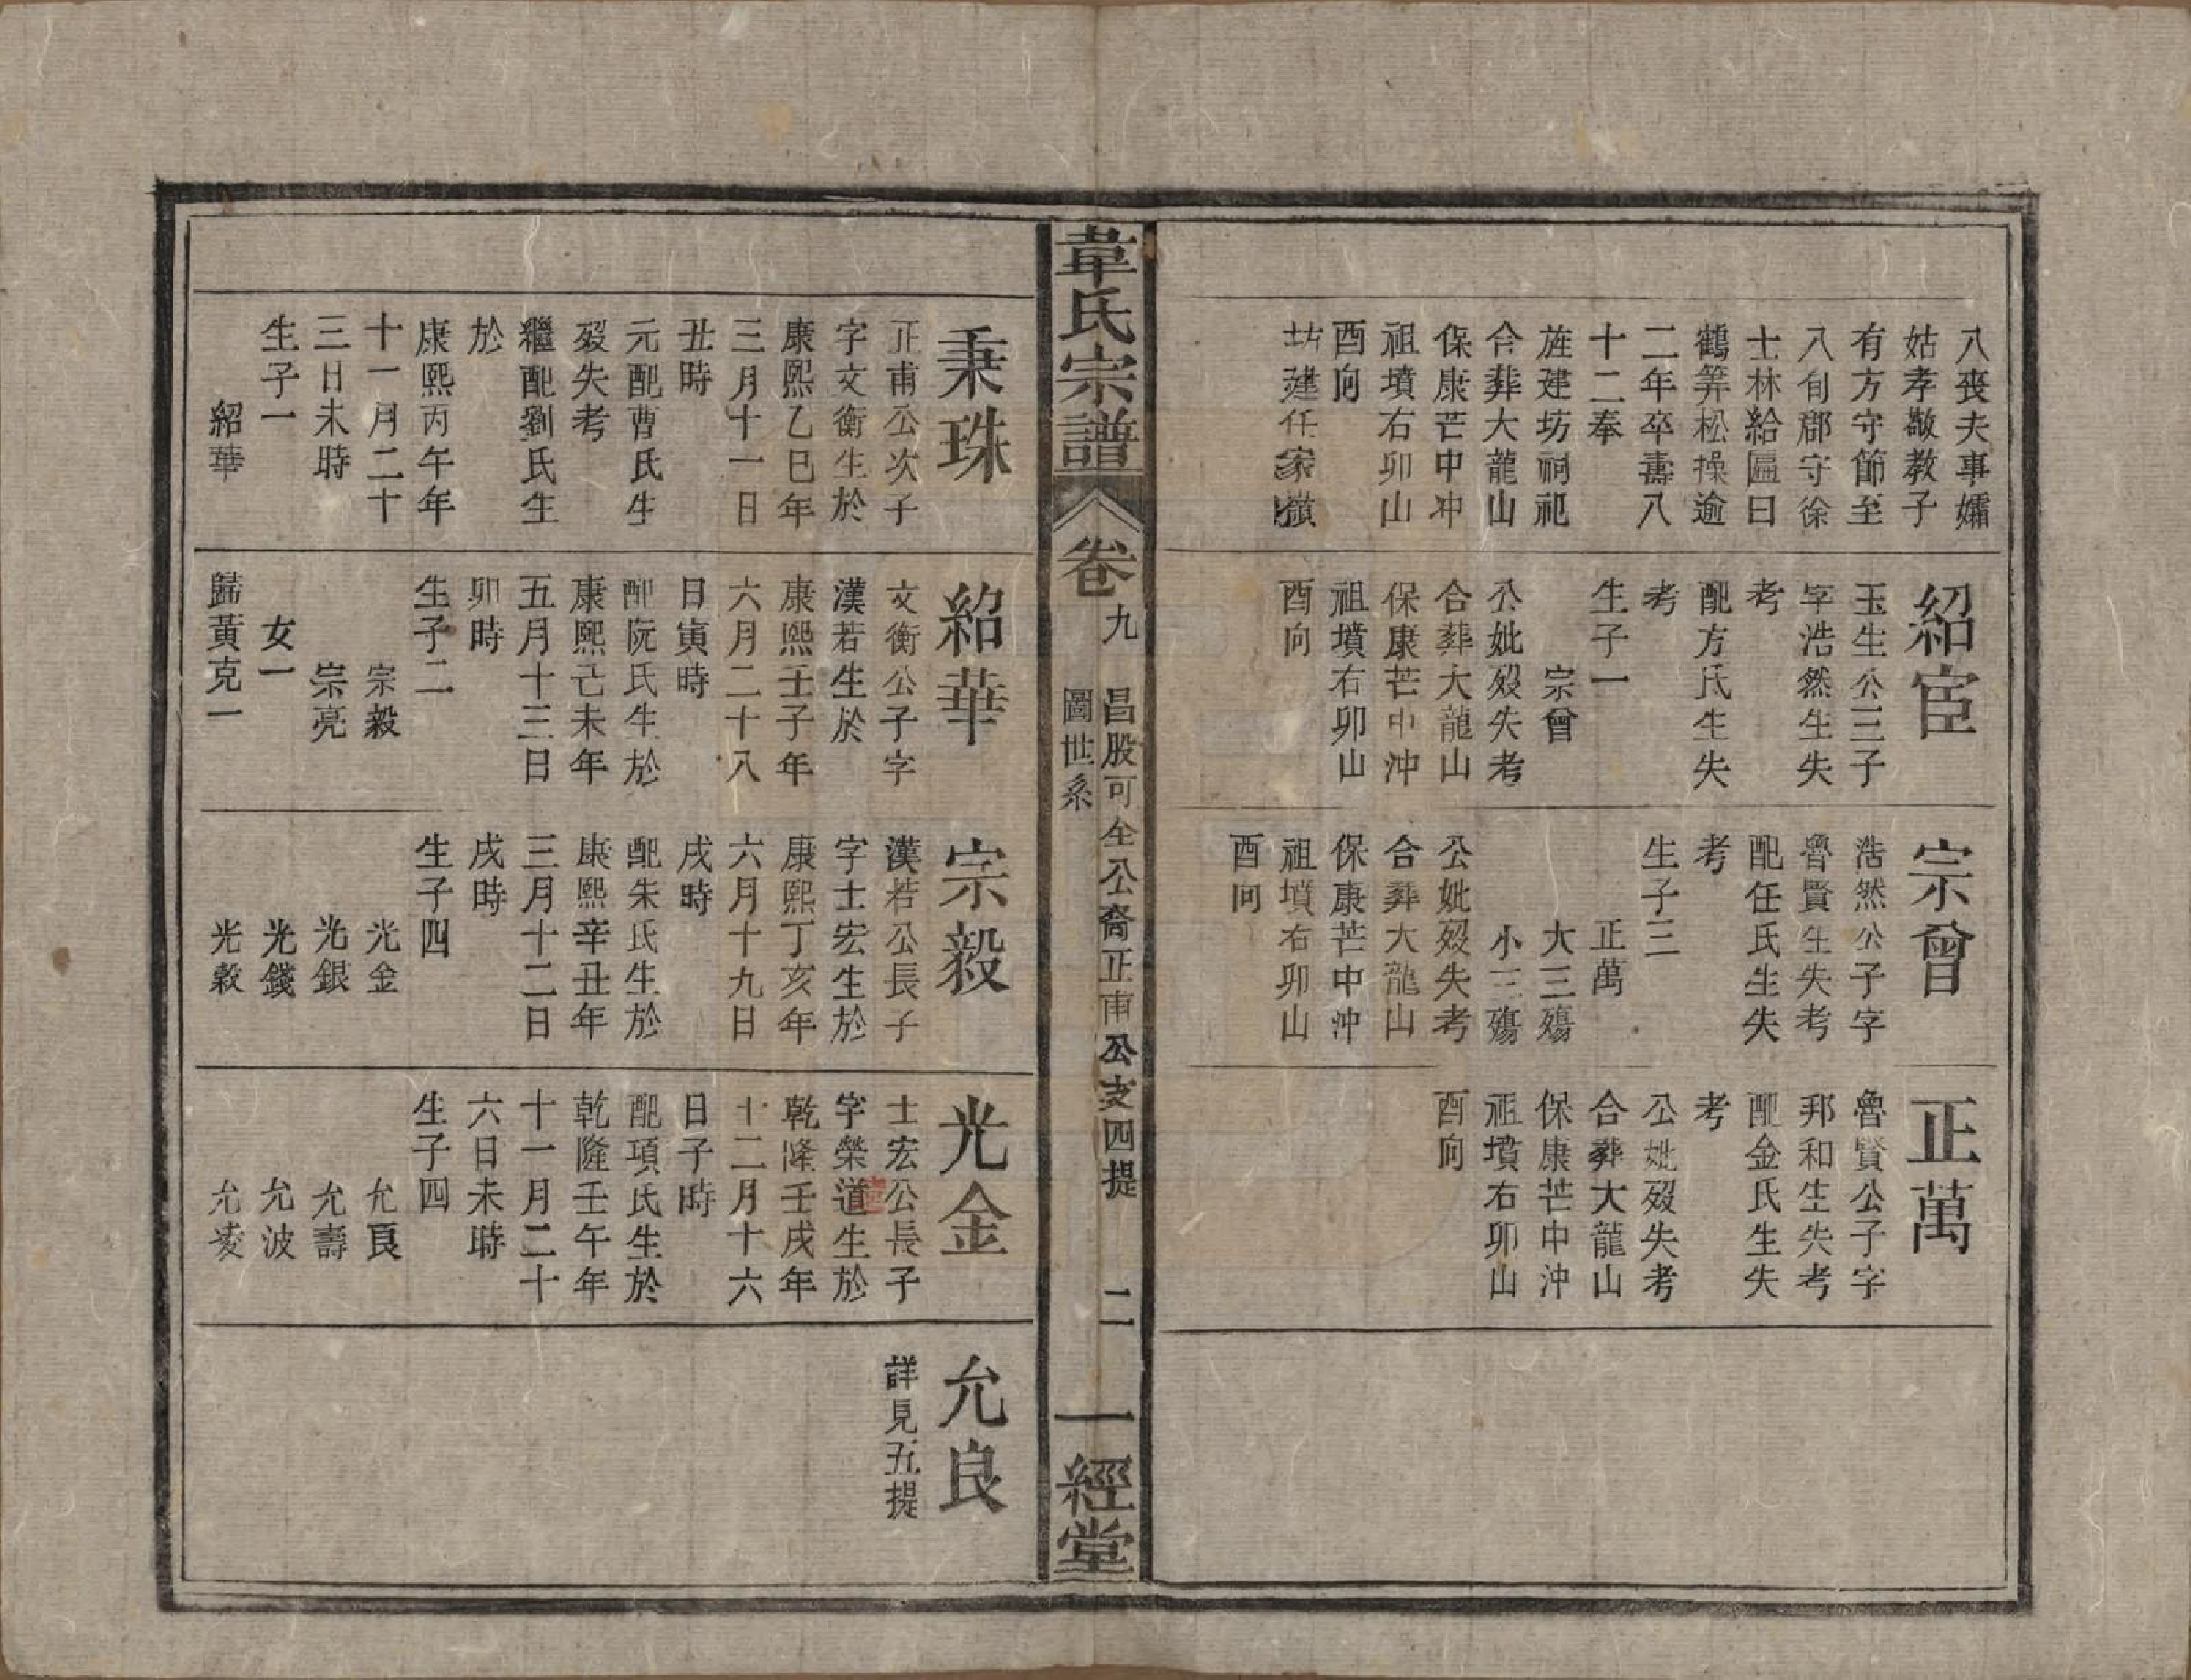 八喪夫事孀
姑孝敬教子
有方守節至
八旬郡守徐
士林給匾曰
鶴筭松操逾
二年卒壽八
十二奉
旌建坊祠祀
合葬大龍山
保康芒中冲
祖墳右卯山
酉向
坊建任家嶺
紹宦
玉生公三子
字浩然生失
考
配方氏生失
考
生子一
宗曾
公妣歿失考
合葬大龍山
保康芒中沖
祖墳右卯山
酉向
宗曾
浩然公子字
魯賢生失考
配任氏生失
考
生子三
正萬
大三殤
小三殤
公妣歿失考
合葬大龍山
保康芒中沖
祖墳右卯山
酉向
正萬
魯賢公子字
邦和生失考
配金氏生失
考
公妣歿失考
合葬大龍山
保康芒中沖
祖墳右卯山
酉向
韋氏宗譜
卷九
昌股可全公裔正甫公支四提
圖世系
二
一經堂
秉珠
正甫公次子
字文衡生於
康熙乙巳年
三月十一日
丑時
元配曹氏生
歿失考
繼配劉氏生
於
康熙丙午年
十一月二十
三日未時
生子一
紹華
紹華
文衡公子字
漢若生於
康熙壬子年
六月二十八
日寅時
配阮氏生於
康熙己未年
五月十三日
卯時
生子二
宗毅
宗亮
女一
歸黃克一
宗毅
漢若公長子
字士宏生於
康熙丁亥年
六月十九日
戌時
配朱氏生於
康熙辛丑年
三月十二日
戌時
生子四
光金
光銀
光錢
光穀
光金
士宏公長子
字榮道生於
乾隆壬戌年
十二月十六
日子時
配項氏生於
乾隆壬午年
十一月二十
六日未時
生子四
允良
允壽
允波
允凌
允良
詳見五提